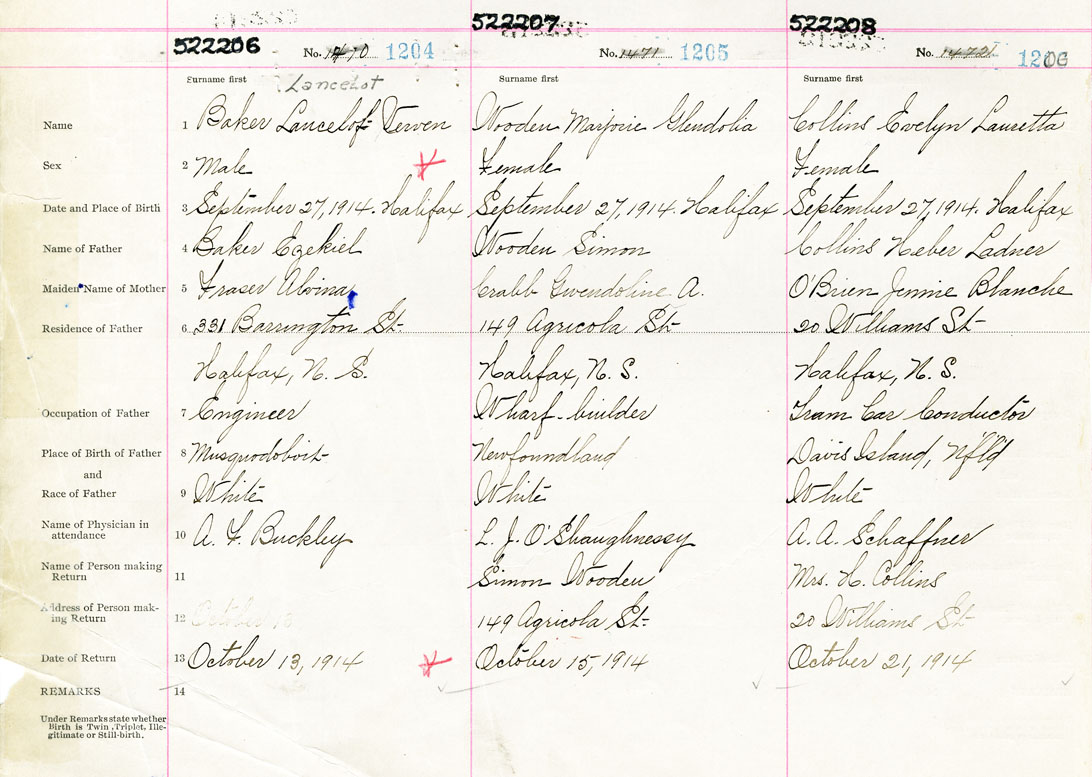 522206 522207 522208
No. 1470 1204 No. 1471 1205 No. 1472 1206
Surname first Surname first Surname first
Lancelot
Name 1 Baker Lancelot Verven Wooden Marjorie Glendolia Collins Evelyn Lauretta
Sex 2 Male Female Female
Date and Place of Birth 3 September 27, 1914. Halifax September 27, 1914. Halifax September 27, 1914. Halifax
Name of Father 4 Baker Ezekiel Wooden Simon Collins Heber Ladner
Maiden Name of Mother 5 Fraser Alvina Crabb Gwendoline A. O'Brien Jennie Blanche
Residence of Father 6 331 Barrington St- 149 Agricola St- 20 Williams St-
Halifax, N. S. Halifax, N. S. Halifax, N. S.
Occupation of Father 7 Engineer Wharf-builder Tram Car Conductor
Place of Birth of Father 8 Musquodoboit- Newfoundland Davis Island, Nfld
and
Race of Father 9 White White White
Name of Physician in
attendance 10 A. F. Buckley L. J. O'Shaughnessy A. A. Schaffner
Name of Person making
Return 11 Simon Wooden Mrs. H. Collins
Address of Person mak-
ing Return 12 October 13 149 Agricola St- 20 Williams St-
Date of Return 13 October 13, 1914 October 15, 1914 October 21, 1914
REMARKS 14
Under Remarks state whether
Birth is Twin, Triplet, Ille-
gitimate or Still-birth.